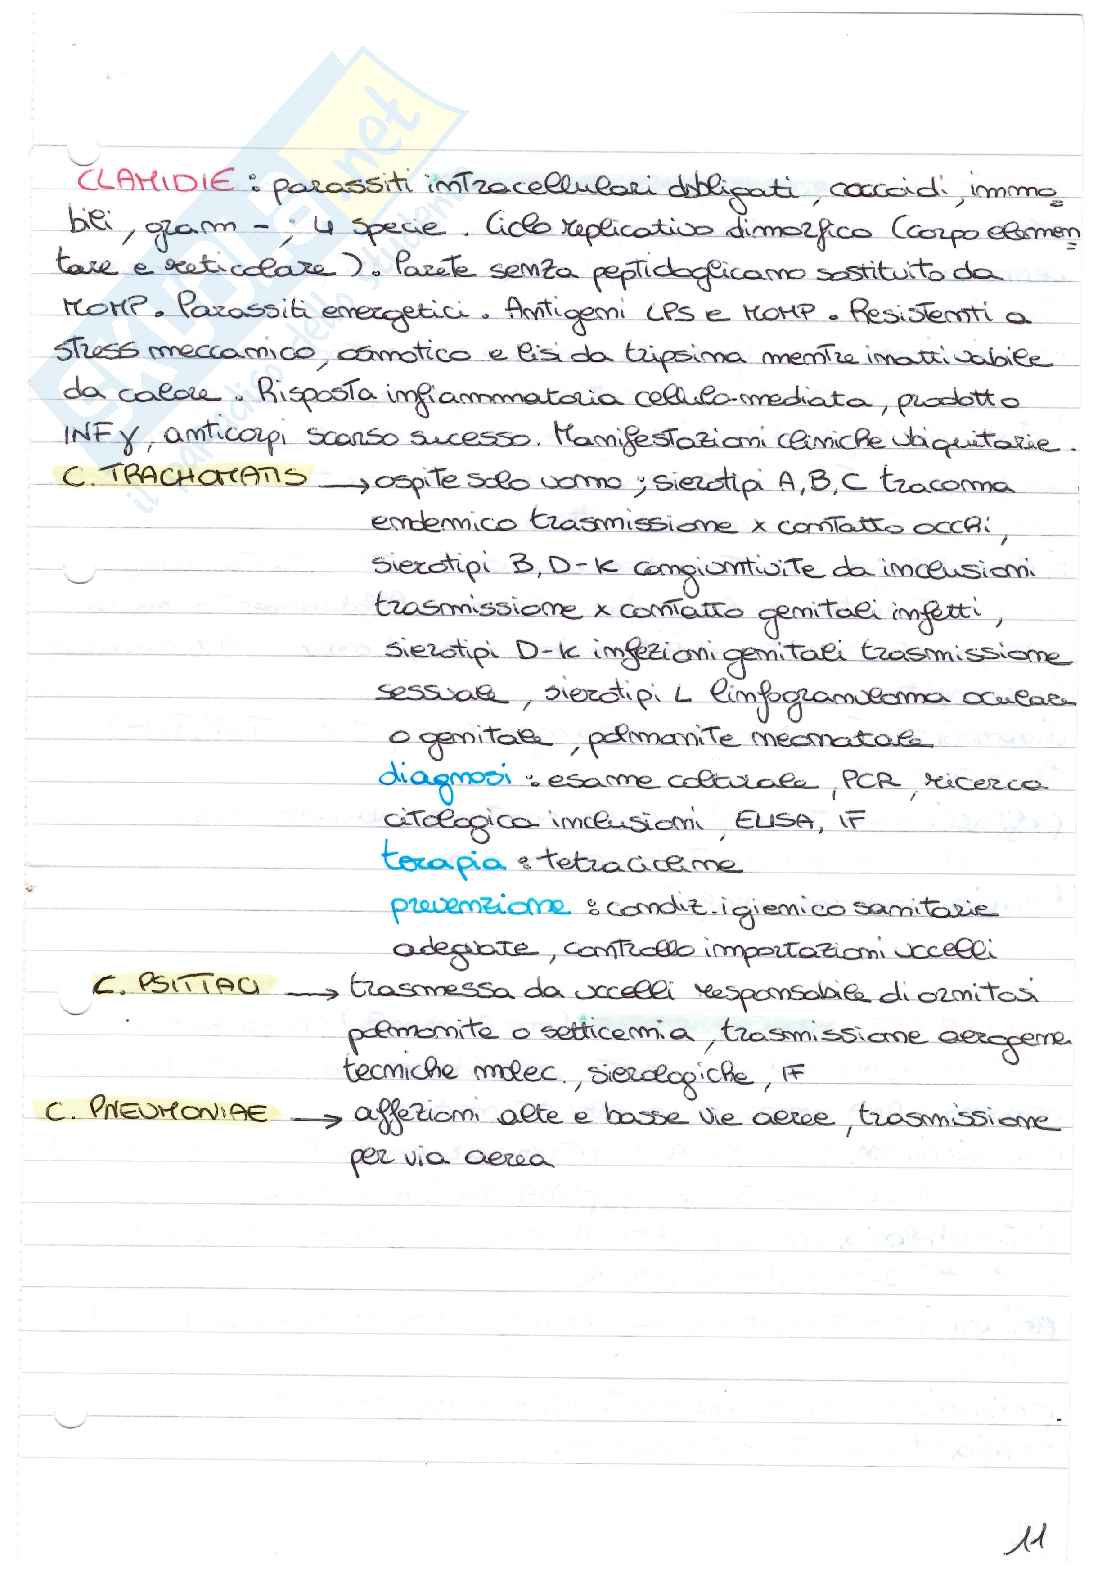 CLAMIDIE : parassiti intracellulari obbligati, coccoidi, immo
bili, gram - ; 4 specie. Ciclo replicativo dimorfico (corpo elemen
tare e reticolare). Parete senza peptidoglicano sostituito da
MOMP. Parassiti energetici. Antigeni LPS e MOMP. Resistenti a
stress meccanico, osmotico e lisi da tripsina mentre inattivabile
da calore. Risposta infiammatoria cellulo-mediata, prodotto
INFγ, anticorpi scarso sucesso. Manifestazioni cliniche ubiquitarie.
C. TRACHOMATIS → ospite solo uomo ; sierotipi A, B, C tracoma
endemico trasmissione x contatto occhi,
sierotipi B, D-K congiuntivite da inclusioni
trasmissione x contatto genitali infetti,
sierotipi D-K infezioni genitali trasmissione
sessuale, sierotipi L linfogranuloma oculare
o genitale, polmonite neonatale
diagnosi : esame colturale, PCR, ricerca
citologica inclusioni, ELISA, IF
terapia : tetracicline
prevenzione : condiz. igienico sanitarie
adeguate, controllo importazioni uccelli
C. PSITTACI → trasmessa da uccelli responsabile di ornitosi
polmonite o setticemia, trasmissione aerogena
tecniche molec., sierologiche, IF
C. PNEUMONIAE → affezioni alte e basse vie aeree, trasmissione
per via aerea
11
SKUOLA.net
il paradiso dello studente